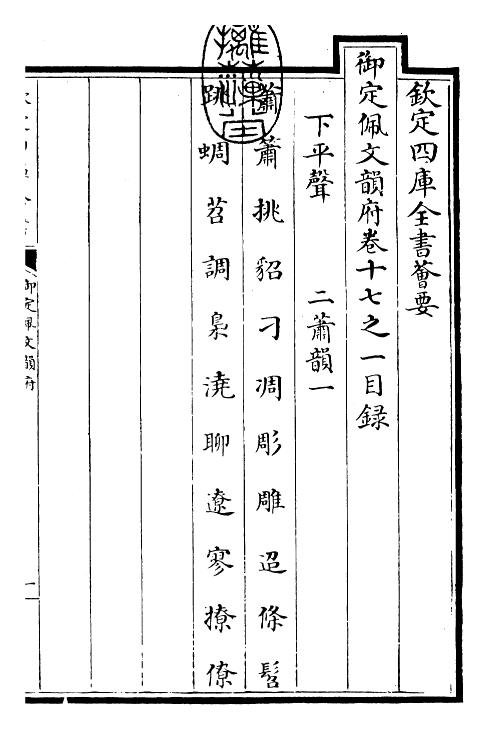 欽定四庫全書薈要
御定佩文韻府卷十七之一目錄
下平聲　二蕭韻一
蕭簫挑貂刁凋彫雕迢條髫
跳蜩苕調梟澆聊遼寥撩僚
御定佩文韻府
一